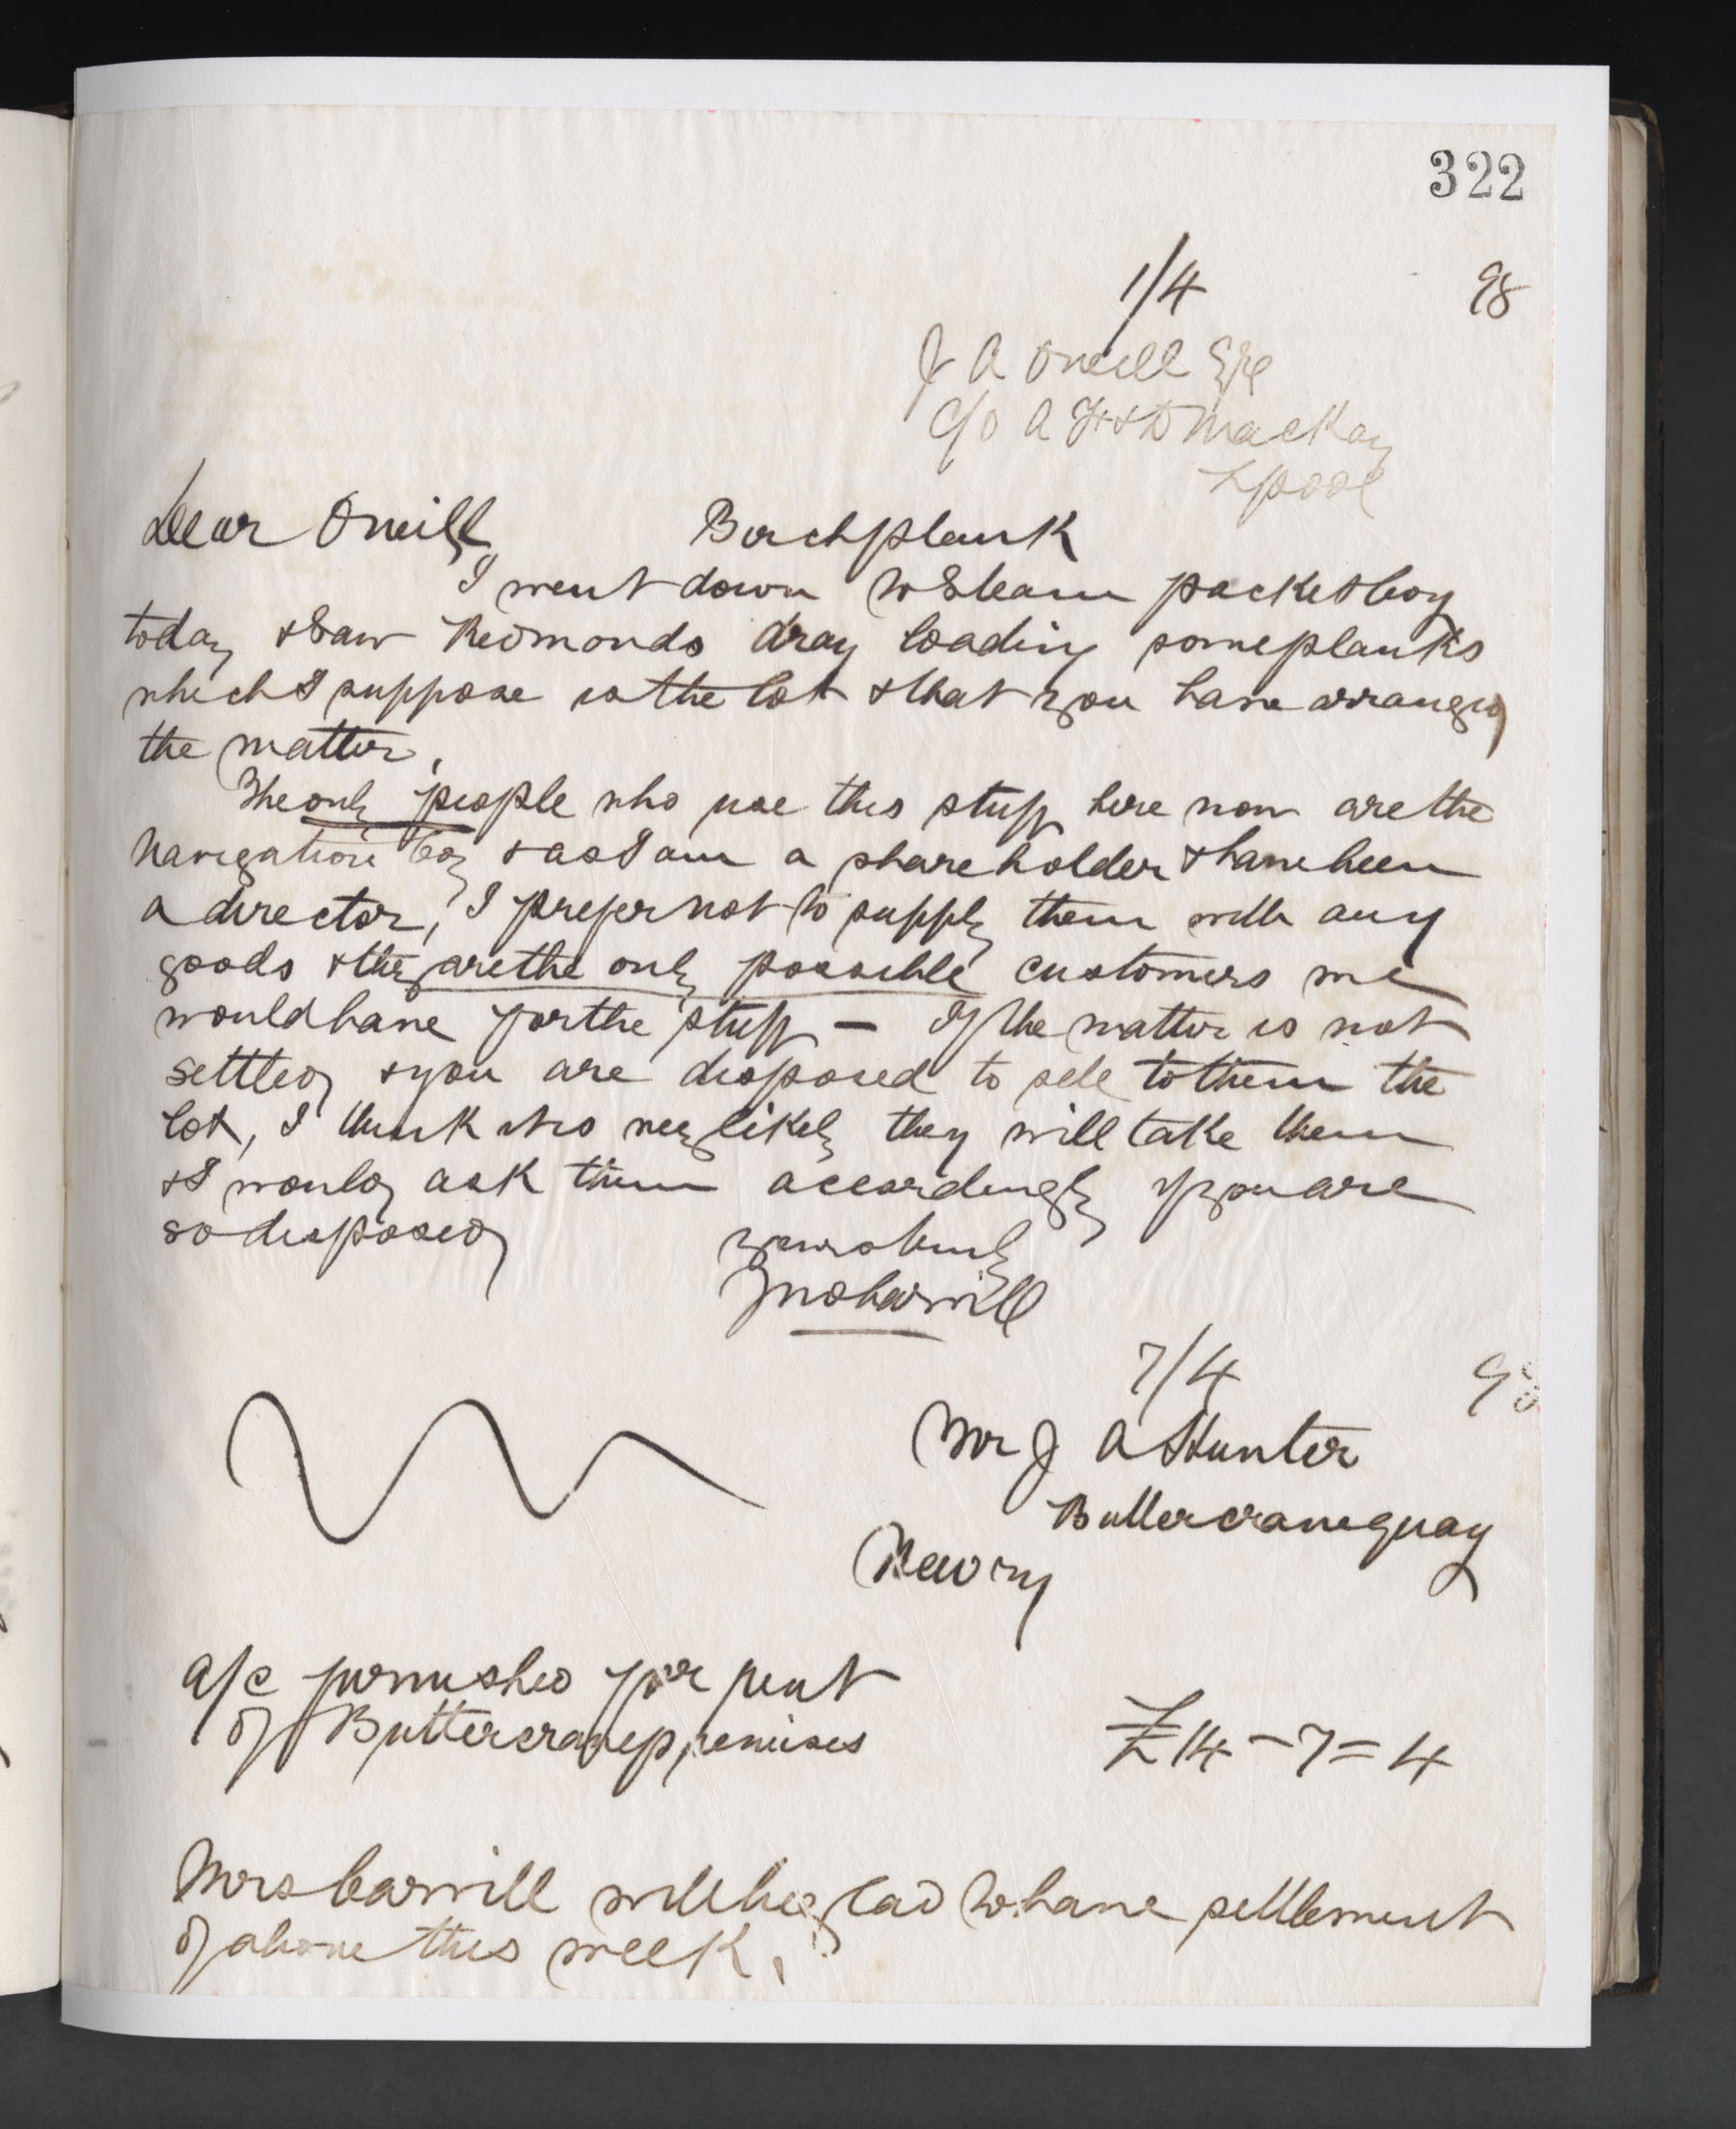 322
1/4 98
J A Oneill Esq
c/o A F & D Mackay
Lpool
Dear Oneill Birch plank
I went down to Steam packet Coy
today & saw Redmonds dray loading some planks
which I suppose is the lot & that you have arranged
the matter.
The only people who use this stuff here now are the
Navigation Coy & as I am a shareholder & have been
a director, I prefer not to supply them with any
goods & they are the only possible customers we
would have for the stuff — If the matter is not
settled & you are disposed to sell to them the
lot, I think its very likely they will take them
& I would ask them accordingly if you are
so disposed
yours truly
Jno Carvill
7/4 98
Mr J A Hunter
Buttercrane quay
Newry
a/c furnished for rent
of Buttercrane premises £14-7=4
Mrs Carvill will be glad to have settlement
of above this week.